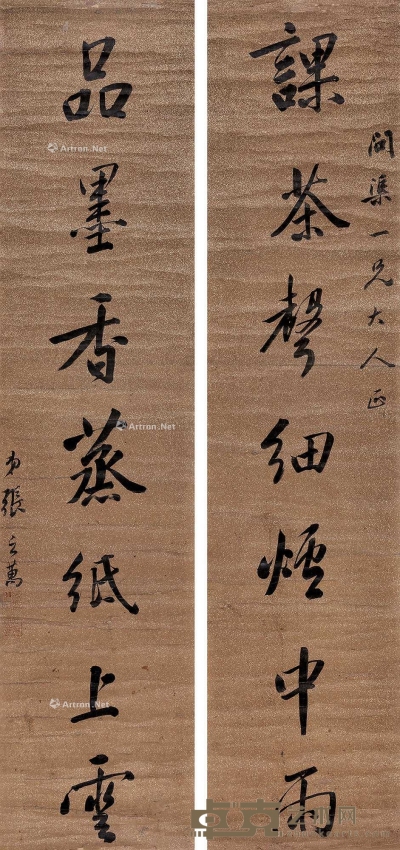 問渠一兄大人正
課茶聲細爐中雨
品墨香蒸紙上雲
弟張之萬
Artron.Net
Artron.Net
Artron.Net
Artron.Net